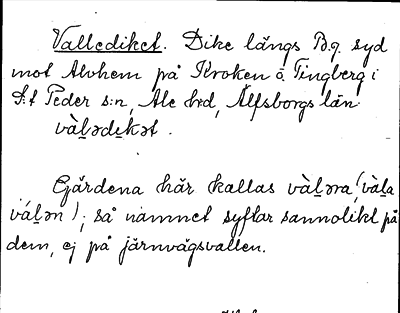 Vallediket. Dike längs B.g. syd
mot Alvhem på Kroken ö. Tingberg i
S:t Peder s:n, Ale hrd, Älfsborgs län
vàḻədi̱kət .
Gärdena här kallas vàḻəra (vàḻa
váḻən); så namnet syftar sannolikt på
dem, ej på järnvägsvallen.